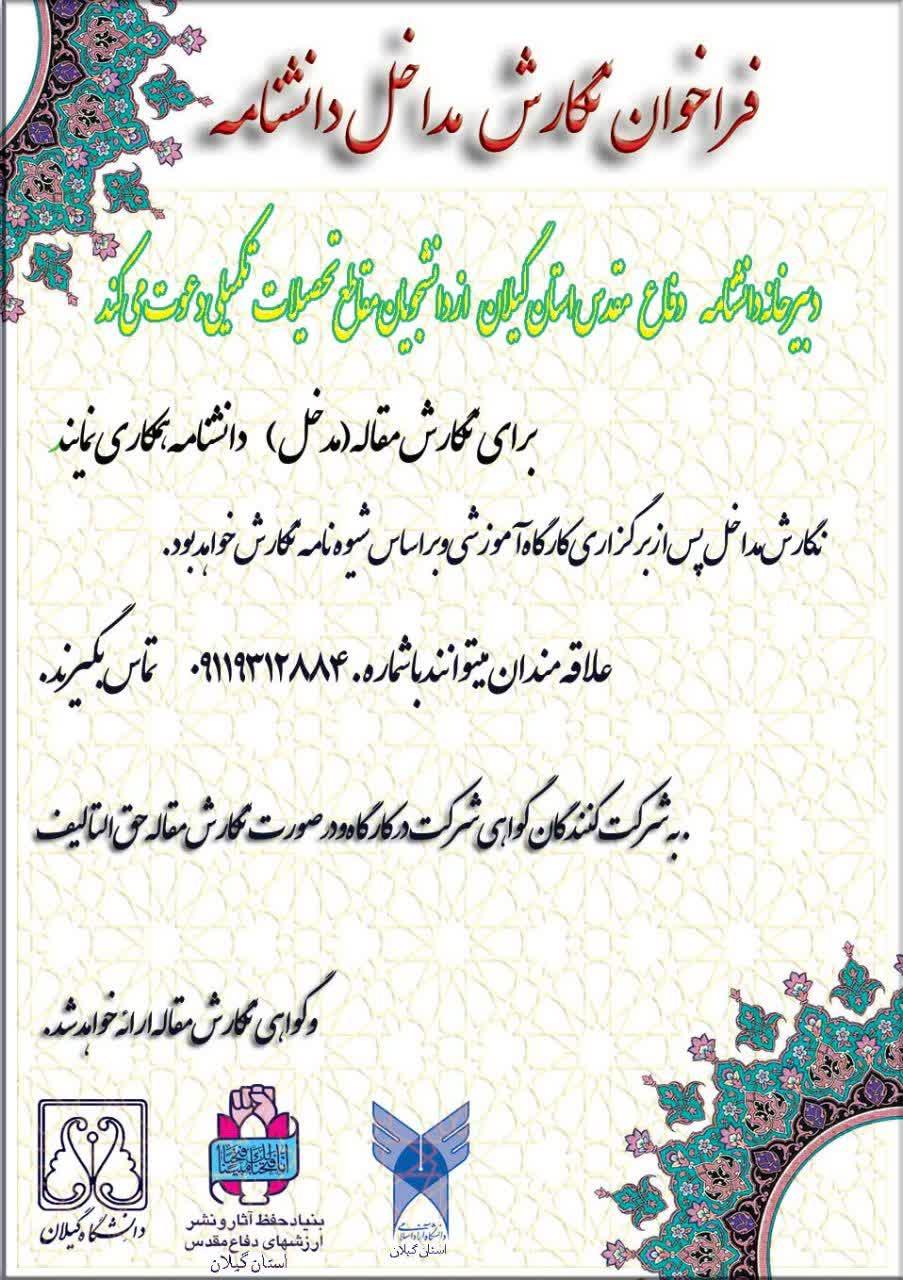 فراخوان نگارش مداخل دانشنامه
دبیرخانه دانشنامه دفاع مقدس استان گیلان از دانشجویان مقاطع تحصیلات تکمیلی دعوت می کند
برای نگارش مقاله (مدخل) دانشنامه همکاری نمایند
نگارش مداخل پس از برگزاری کارگاه آموزشی و بر اساس شیوه نامه نگارش خواهد بود.
علاقه مندان میتوانند با شماره. ۰۹۱۱۹۳۱۲۸۸۴ تماس بگیرند.
.به شرکت کنندگان گواهی شرکت در کارگاه و در صورت نگارش مقاله حق التالیف
و گواهی نگارش مقاله ارائه خواهد شد.
انا فتحنا لک فتحا مبینا
دانشگاه گیلان
بنیاد حفظ آثار و نشر
ارزشهای دفاع مقدس
استان گیلان
دانشگاه آزاد اسلامی
استان گیلان